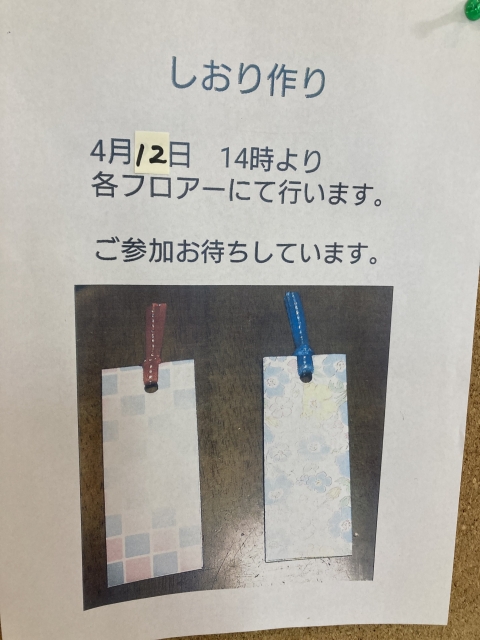 しおり作り
4月12日　14時より
各フロアーにて行います。
ご参加お待ちしています。